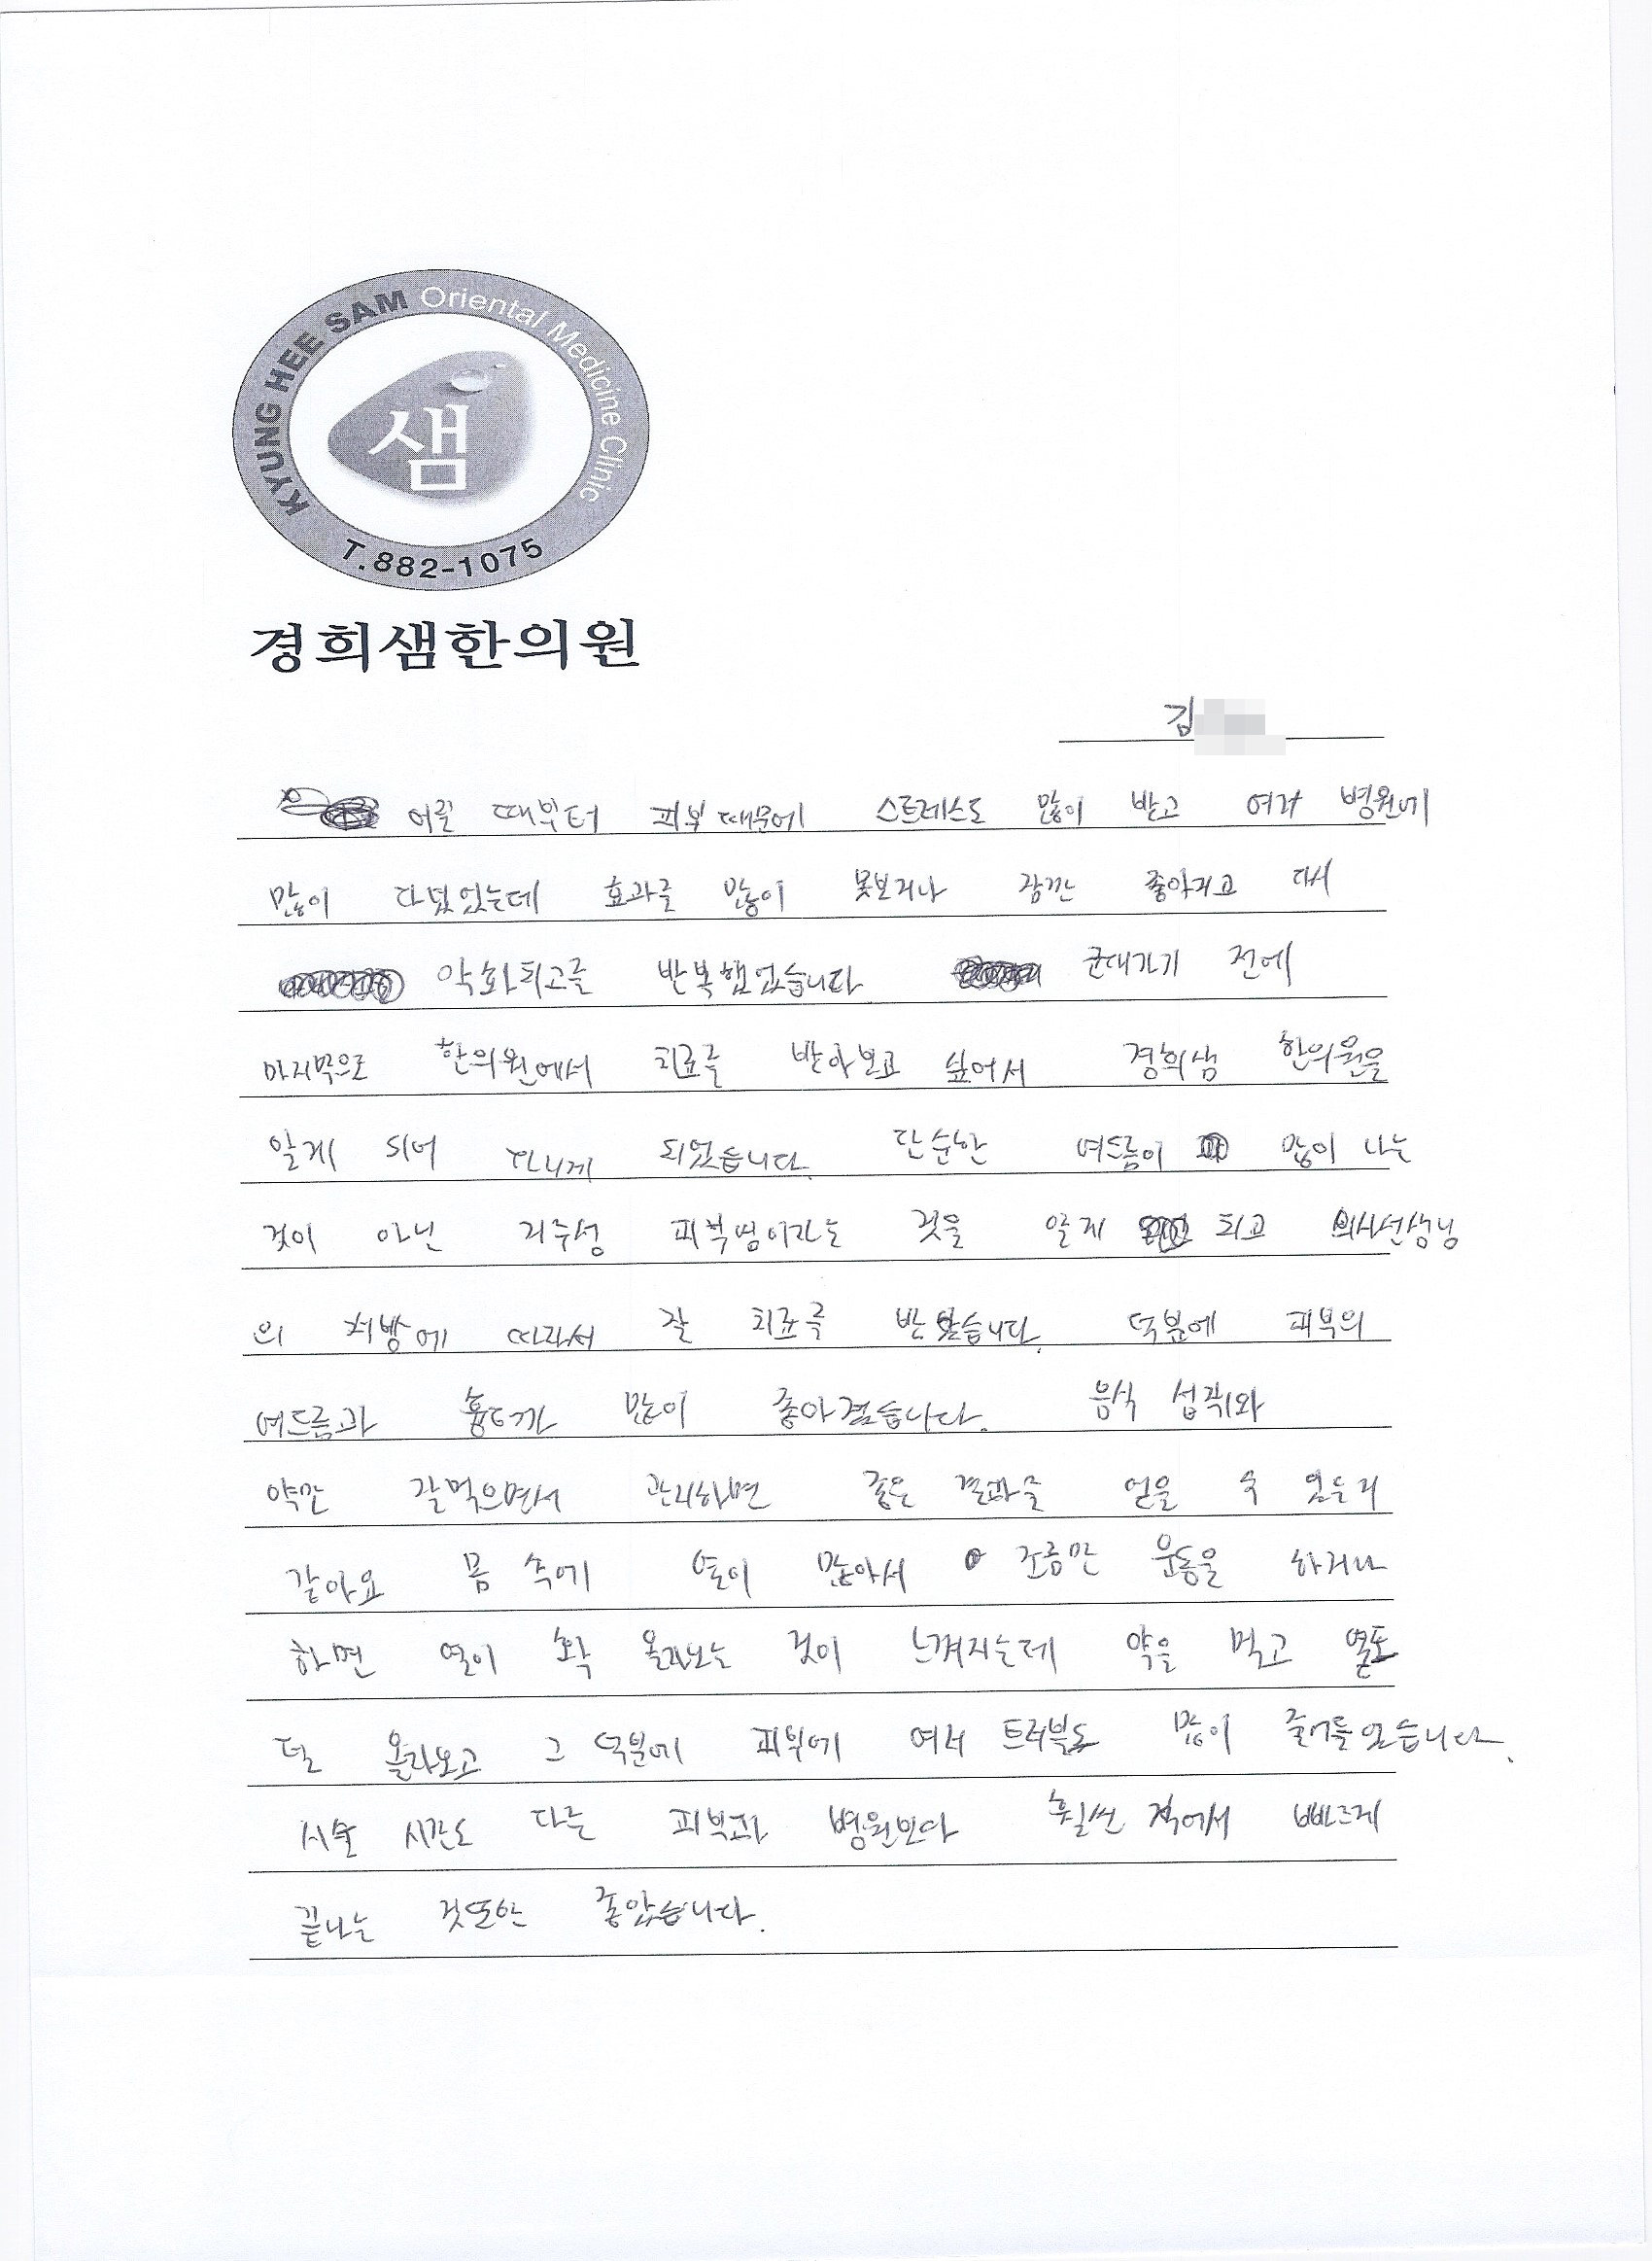 KYUNG HEE SAM Oriental Medicine Clinic
샘
T.882-1075
경희샘한의원
김
어릴 때부터 피부 때문에 스트레스도 많이 받고 여러 병원에
많이 다녔었는데 효과를 많이 못보거나 잠깐 좋아지고 다시
악화되고를 반복했었습니다 군대가기 전에
마지막으로 한의원에서 치료를 받아보고 싶어서 경희샘 한의원을
알게 되어 다니게 되었습니다. 단순한 여드름이 많이 나는
것이 아닌 지루성 피부염이라는 것을 알게 되고 의사선생님
의 처방에 따라서 잘 치료를 받았습니다. 덕분에 피부의
여드름과 흉터가 많이 좋아졌습니다. 음식 섭취와
약만 잘먹으면서 관리하면 좋은 결과를 얻을 수 있는거
같아요 몸 속에 열이 많아서 조금만 운동을 하거나
하면 열이 확 올라오는 것이 느껴지는데 약을 먹고 열도
덜 올라오고 그 덕분에 피부에 여러 트러블도 많이 줄어들었습니다.
시술 시간도 다른 피부과 병원보다 훨씬 적어서 빠르게
끝나는 것또한 좋았습니다.